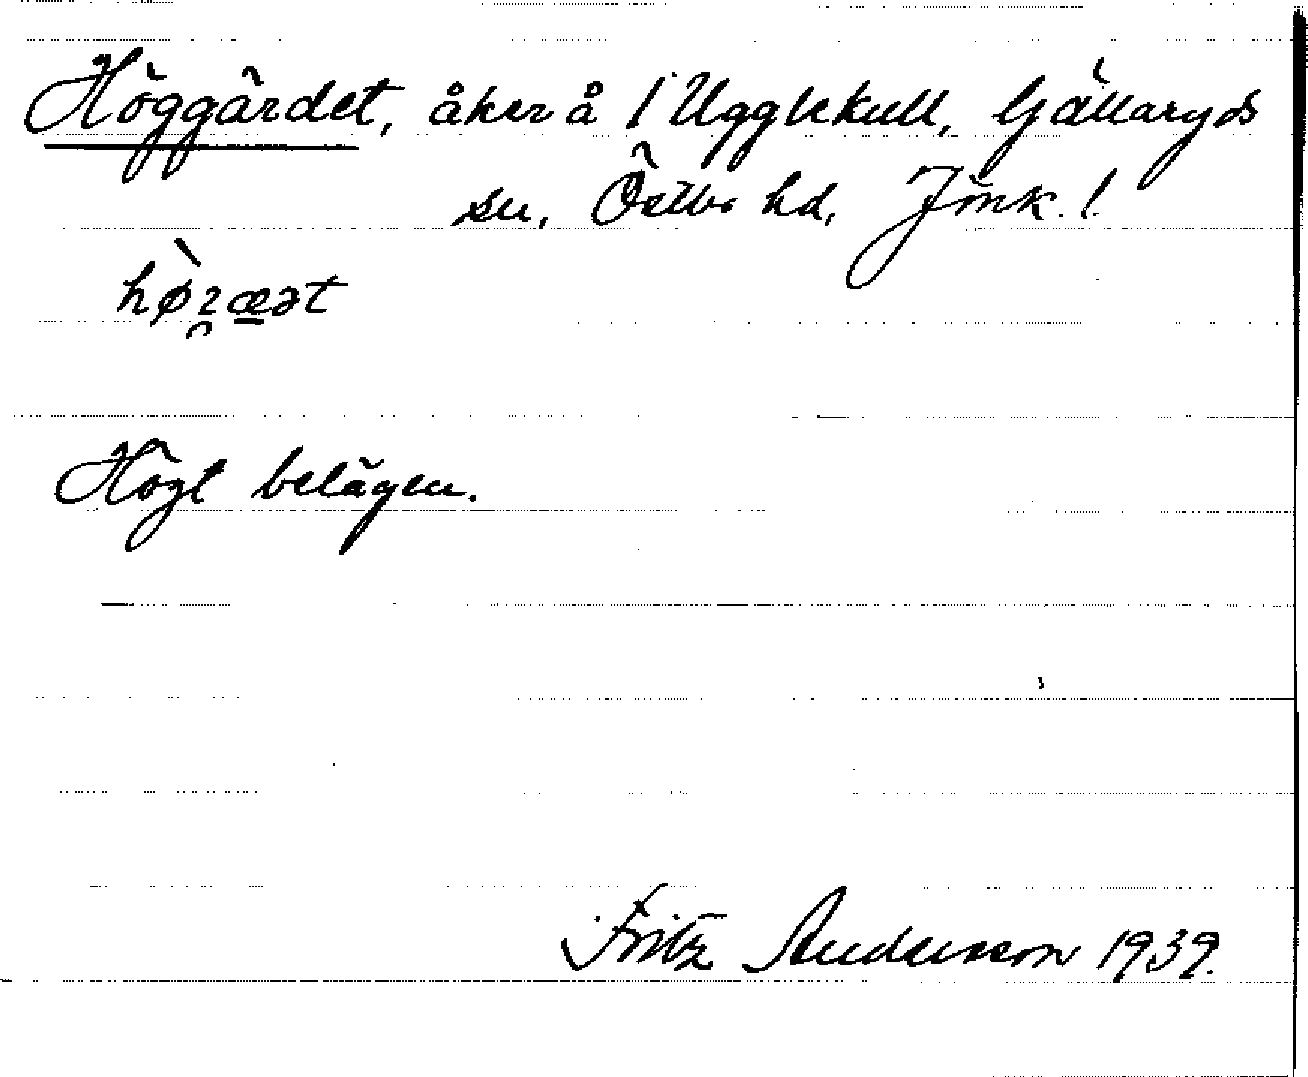 Höggärdet, åker å 1 Ugglekull, Gällaryds
sn, Östbo hd, Jönk. l.
Högt belägen.
Fritz Andersson 1939.